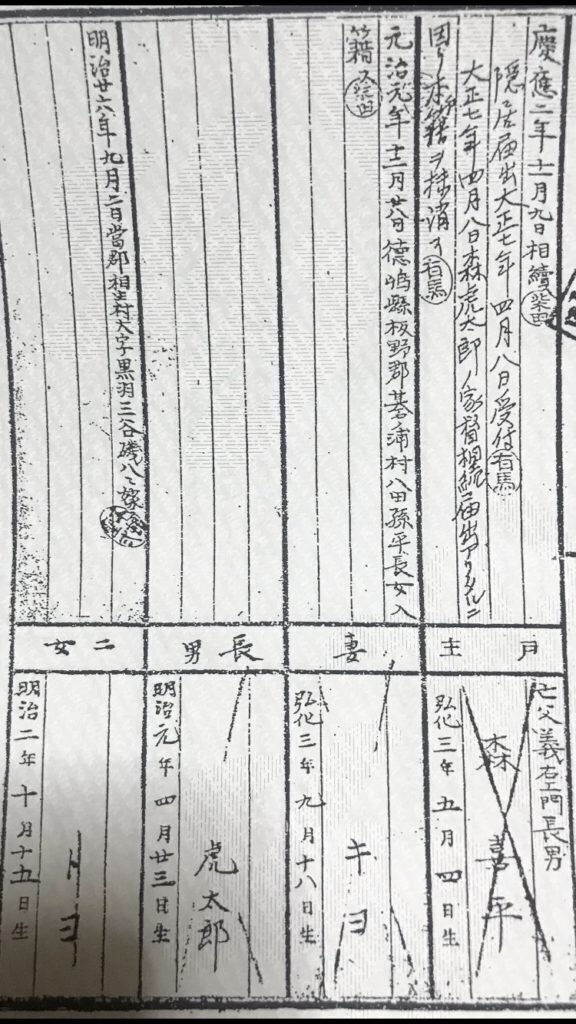 慶應二年十一月九日相續
柴田
隠居届出大正七年四月八日受付
有馬
大正七年四月八日森虎太郎ノ家督相続届出アリタルニ
因リ本籍ヲ抹消ス
有馬
戸主
亡父義右衛門長男
森喜平
弘化三年五月四日生
元治元年十二月廿八日徳島縣板野郡碁浦村八田孫平長女入
籍
柴田
妻
キヨ
弘化三年九月十八日生
長男
虎太郎
明治元年四月廿三日生
明治廿六年九月二日當郡相生村大字黒羽三谷磯八ヘ嫁
二女
トヨ
明治二年十月十五日生